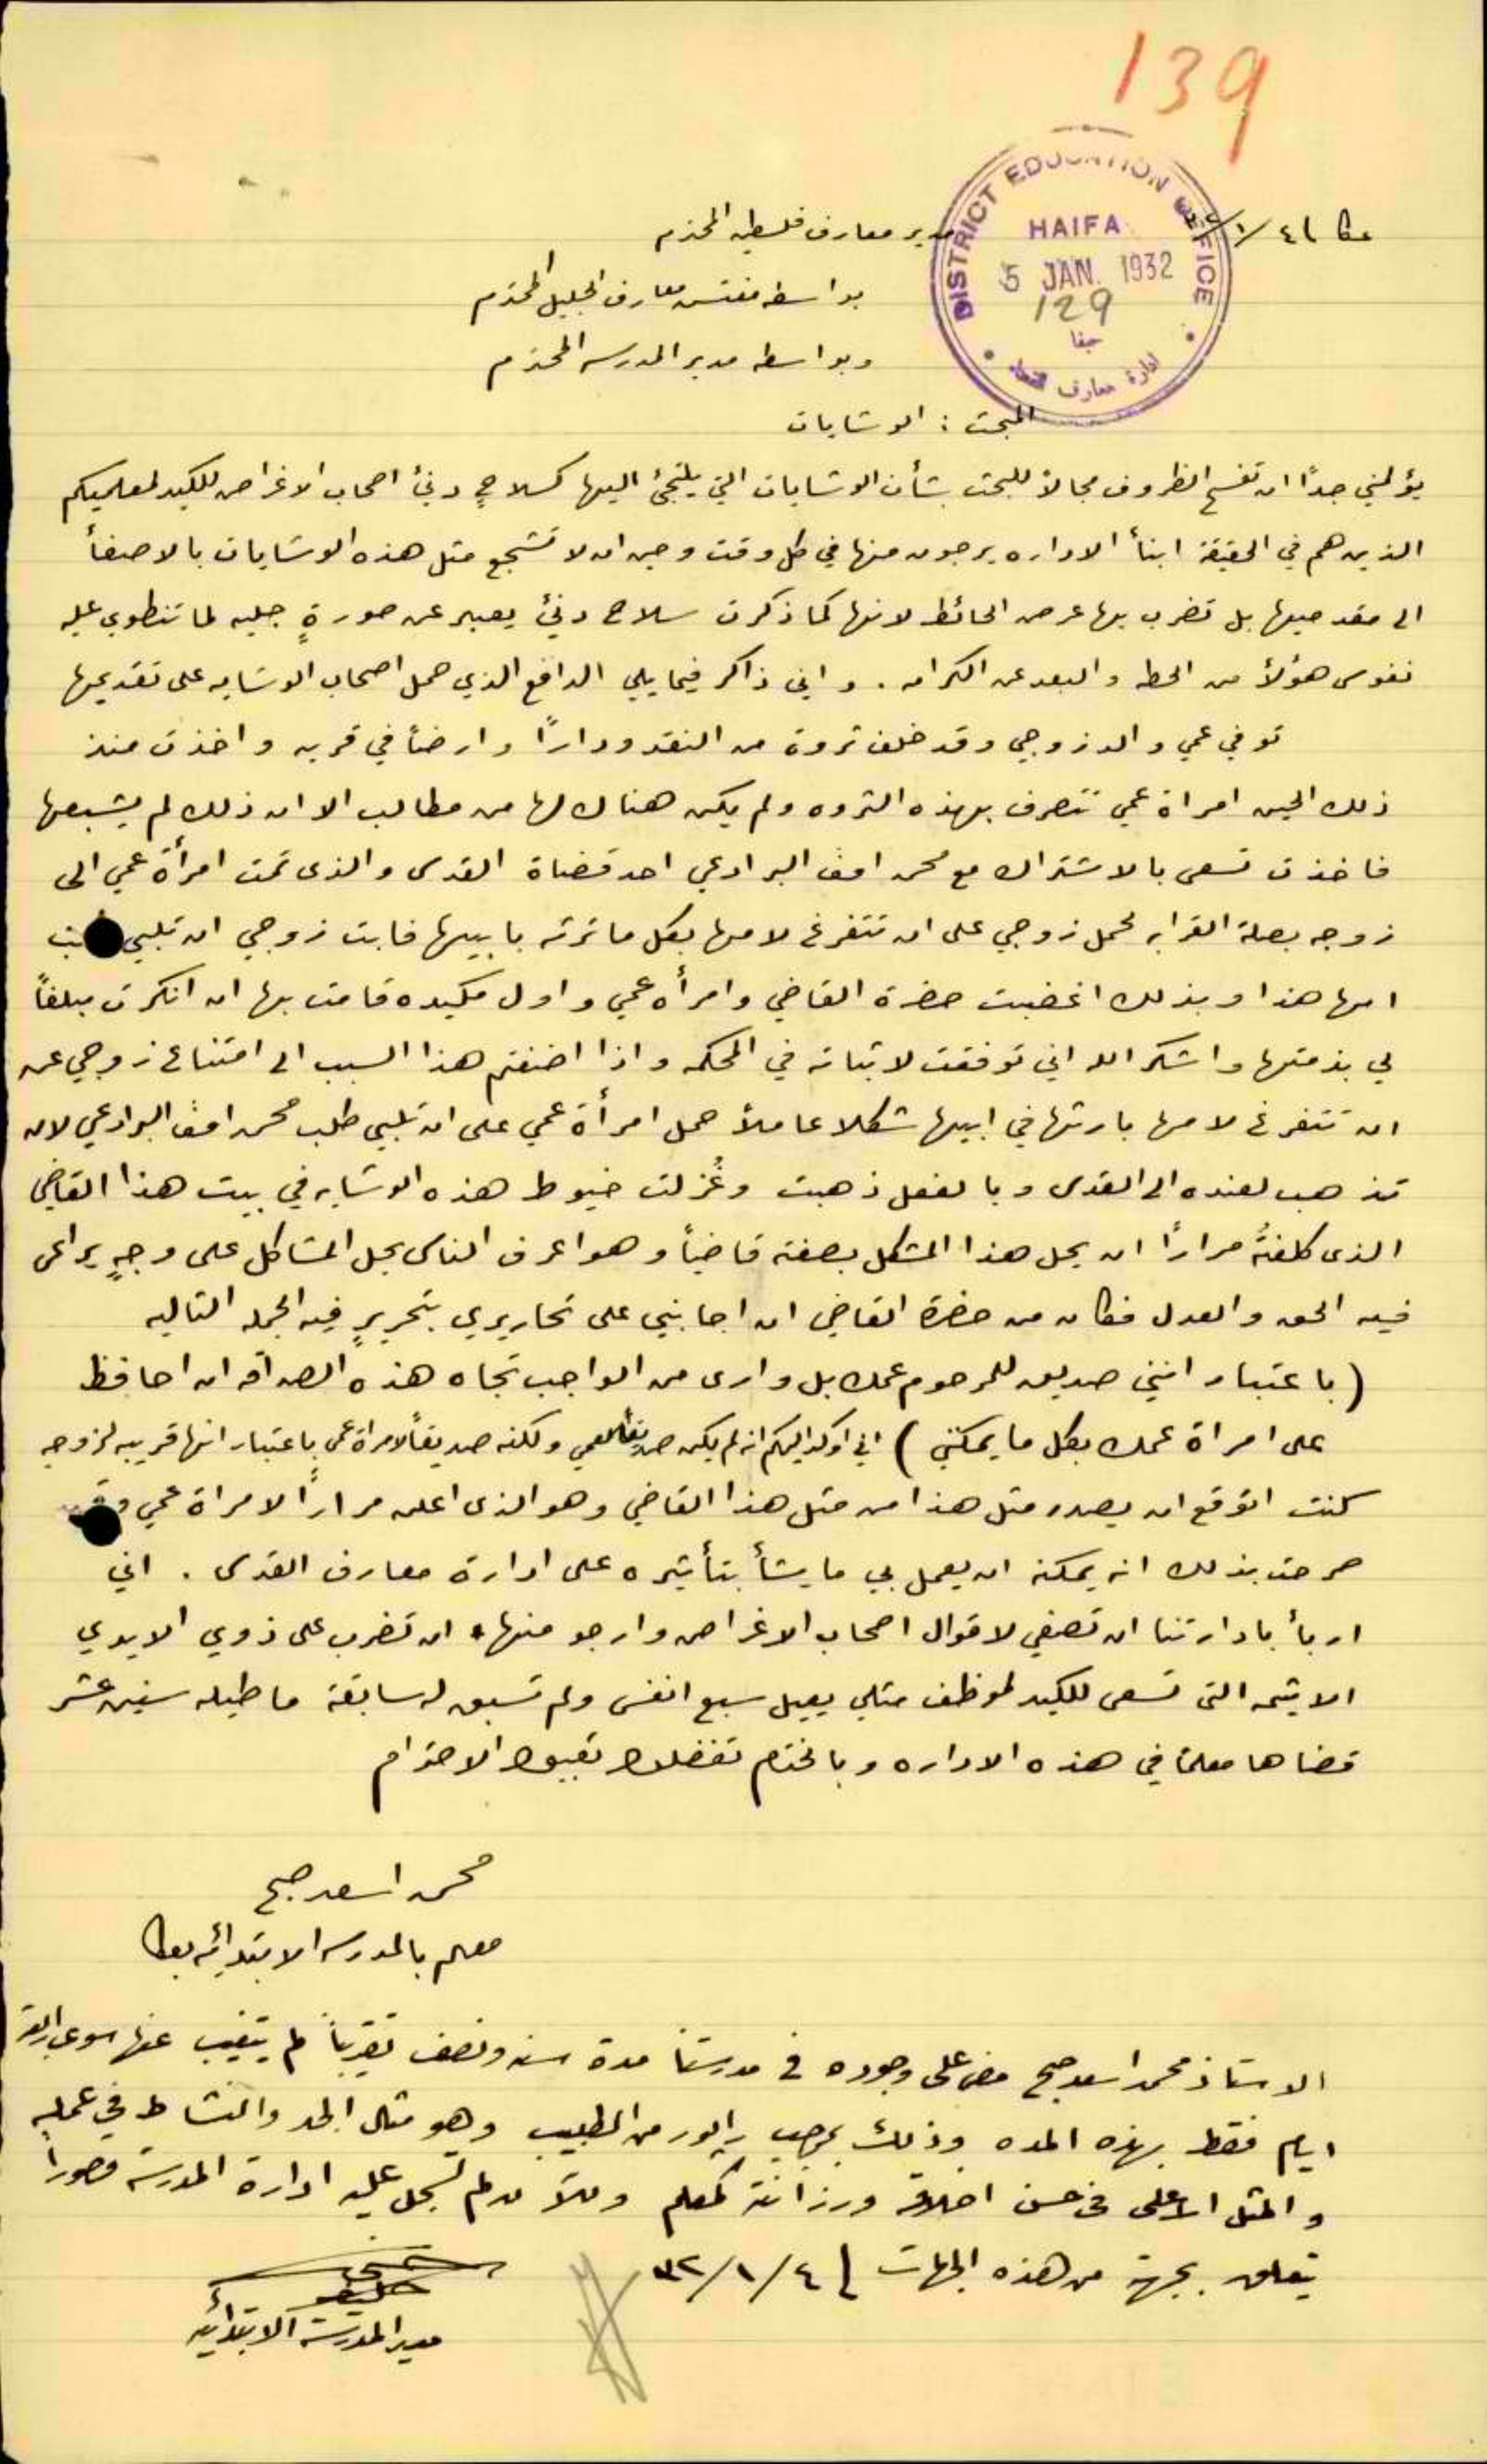 139
عكا ٤/١/٣٢
مدير معارف فلسطين المحترم
DISTRICT EDUCATION OFFICE
HAIFA
5 JAN. 1932
129
حيفا
ادارة معارف
بواسطة مفتش معارف الجليل المحترم
وبواسطة مدير المدرسه المحترم
المبحث : الوشايات
يؤلمني جداً ان تفسح الظروف مجالاً للبحث بشأن الوشايات التي يلتجئ اليها كسلاحٍ دنئ اصحاب الاغراض للكيد لمعلميكم
الذين هم في الحقيقة ابنأ الاداره يرجون منها في كل وقت وحين ان لا تشجع مثل هذه الوشايات بالاصغأ
الى مقدميها بل تضرب بها عرض الحائط لانها كما ذكرت سلاح دنئ يعبر عن صورةٍ جليه لما تنطوي عليه
نفوس هؤلأ من الحطه والبعد عن الكرامه . واني ذاكر فيما يلي الدافع الذي حمل اصحاب الوشايه على تقديمها
توفي عمي والد زوجي وقد خلف ثروة من النقد وداراً وارضاً في قريه واخذت منذ
ذلك الحين امراة عمي تتصرف بهذه الثروه ولم يكن هناك لها من مطالب الا ان ذلك لم يشبعها
فاخذت تسعى بالاشتراك مع محمد افندي البرادعي احد قضاة القدس والذى تمت امرأة عمي الى
زوجه بصلة القرابه لحمل زوجي على ان تتفرغ لامها بكل ما ترثه بابيها فابت زوجي ان تلبي
امها هذا وبذلك اغضبت حضرة القاضي وامرأه عمي واول مكيده قامت بها ان انكرت مبلغاً
لي بذمتها واشكر الله اني توفقت لاثباته في المحكمه واذا اضفتم هذا السبب الى امتناع زوجي عن
ان تتفرغ لامها بارثها في ابيها شكلا عاملاً حمل امرأة عمي على ان تلبي طلب محمد افندي البرادعي لان
تذهب لعنده الى القدس وبالفعل ذهبت وغُزلت خيوط هذه الوشايه في بيت هذا القاضي
الذى كلفتُه مراراً ان يحل هذا المشكل بصفته قاضياً وهو اعرف الناس بحل المشاكل على وجهٍ يراعى
فيه الحق والعدل فكان من حضرة القاضي ان اجابني على تحاريري بتحريرٍ فيه الجمله التاليه
( باعتبار انني صديق للمرحوم عمك بل وارى من الواجب تجاه هذه الصداقه ان احافظ
على امراة عمك بكل ما يمكنني ) اني اوكد اليكم انه لم يكن صديقاً لعمي ولكنه صديقاً لامراة عمي باعتبار انها قريبه لزوجه
كنت اتوقع ان يصدر مثل هذا من مثل هذا القاضي وهو الذى اعلن مراراً لامراة عمي
صرحت بذلك انه يمكنه ان يعمل بي ما يشأ بتأثيره على ادارة معارف القدس . اني
اربأ بادارتنا ان تصغي لاقوال اصحاب الاغراض وارجو منها ان تضرب على ذوي الايدي
الاثيمه التى تسعى للكيد لموظف مثلي يعيل سبع انفس ولم تسبق له سابقة ما طيله سنين عشر
قضاها معلماً في هذه الاداره وبالختام تفضلوا بقبول الاحترام
محمد اسعد صبح
معلم بالمدرسه الابتدائيه بعكا
الاستاذ محمد اسعد صبح مضى على وجوده في مدرستنا مدة سنه ونصف تقريباً لم يتغيب عنها سوى اربعة
ايام فقط بهذه المده وذلك بموجب رابور من الطبيب وهو مثال الجد والنشاط في عمله
والمثل الاعلى في حسن اخلاقه ورزانته كمعلم ولم تسجل عليه ادارة المدرسة قصوراً
يتعلق بجهة من هذه الجهات ٤/١/٣٢
مدير المدرسة الابتدائيه